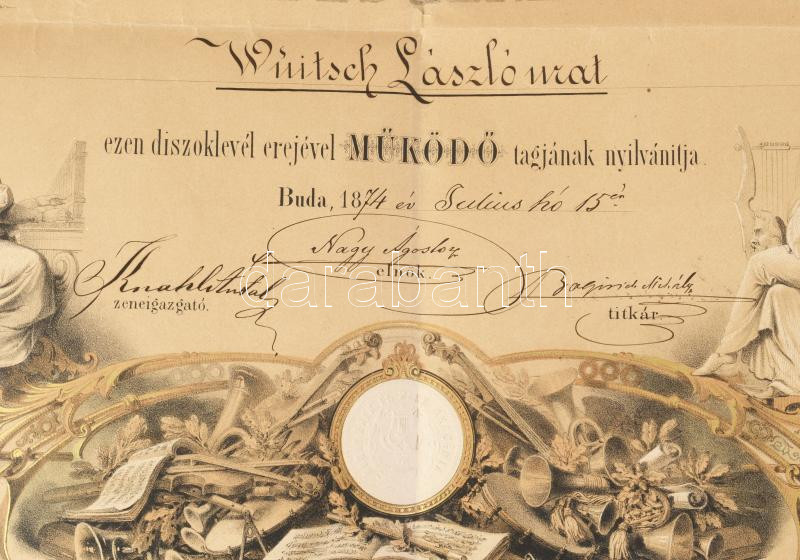 Wüitsch László urat
ezen diszoklevél erejével MŰKÖDŐ tagjának nyilvánitja.
Buda, 1874 év Julius hó 15én
Nagy Ágoston
elnök.
Knahl Antal
zeneigazgató.
Mihály
titkár.
darabanth